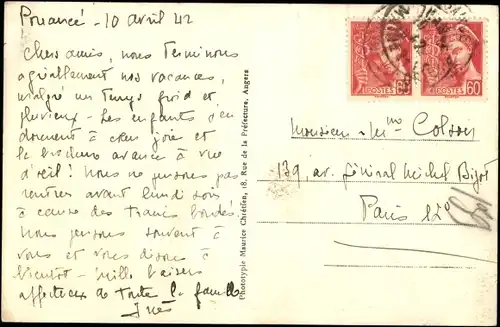 Pouancé - 10 avril 42
Chers amis, nous terminons
agréablement nos vacances,
malgré un temps froid et
pluvieux - Les enfants s'en
donnent à cœur joie et
le avance à vue
d'œil ! Nous ne pensons pas
rentrer avant lundi soir
à cause des trains bondés.
Nous pensons souvent à
vous et vous disons à
bientôt - Mille baisers
affectueux de toute la famille
Phototypie Maurice Chrétien, 18, Rue de la Préfecture, Angers
POSTES
POSTES 60
Monsieur - Mme
139, av. Général Michel Bizot
Paris 12e